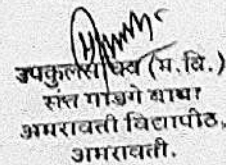 उपकुलसचिव (म. वि.)
संत गाडगे बाबा
अमरावती विद्यापीठ,
अमरावती.